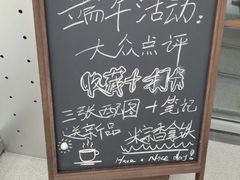 端午活动:
大众点评
收藏+打卡
三张图+笔记
送新品 米宗香拿铁
Have a Nice day!